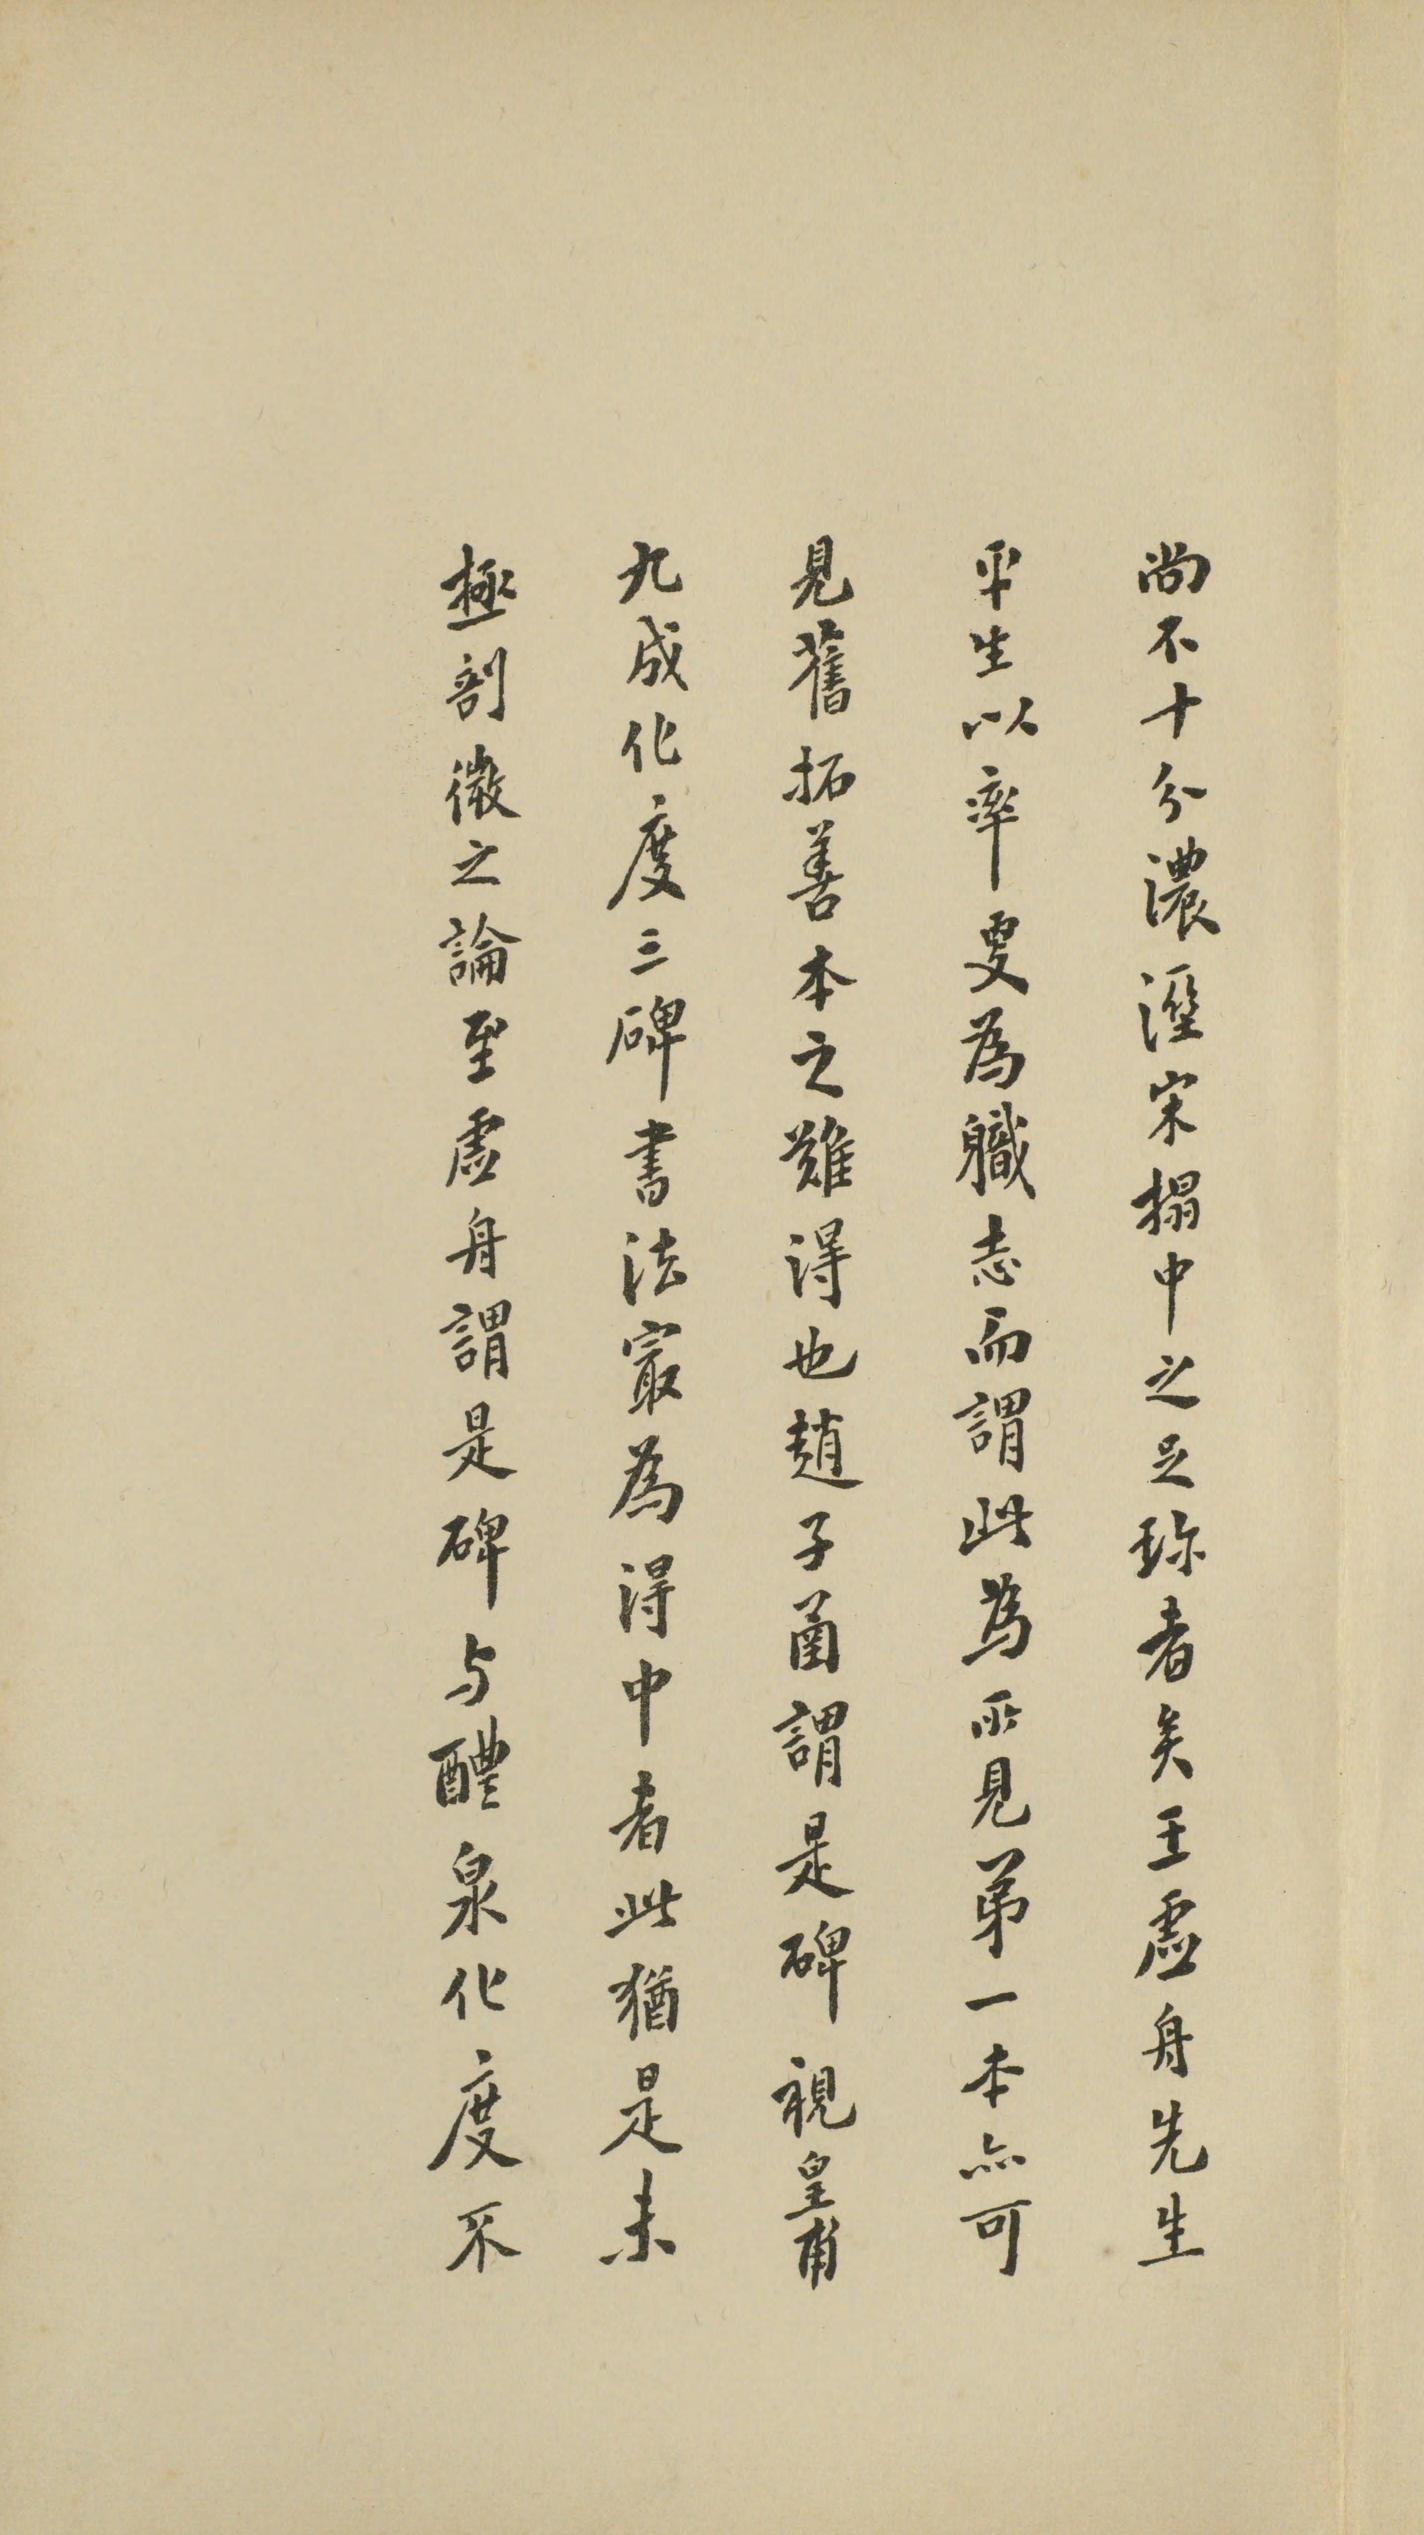 尚不十分濃溼宋搨中之足珎者矣王虛舟先生
平生以率叓為職志而謂此為所見第一本亦可
見舊拓善本之難得也趙子函謂是碑視皇甫
九成化度三碑書法冣為得中者此猶是未
極剖微之論至虛舟謂是碑与醴泉化度不